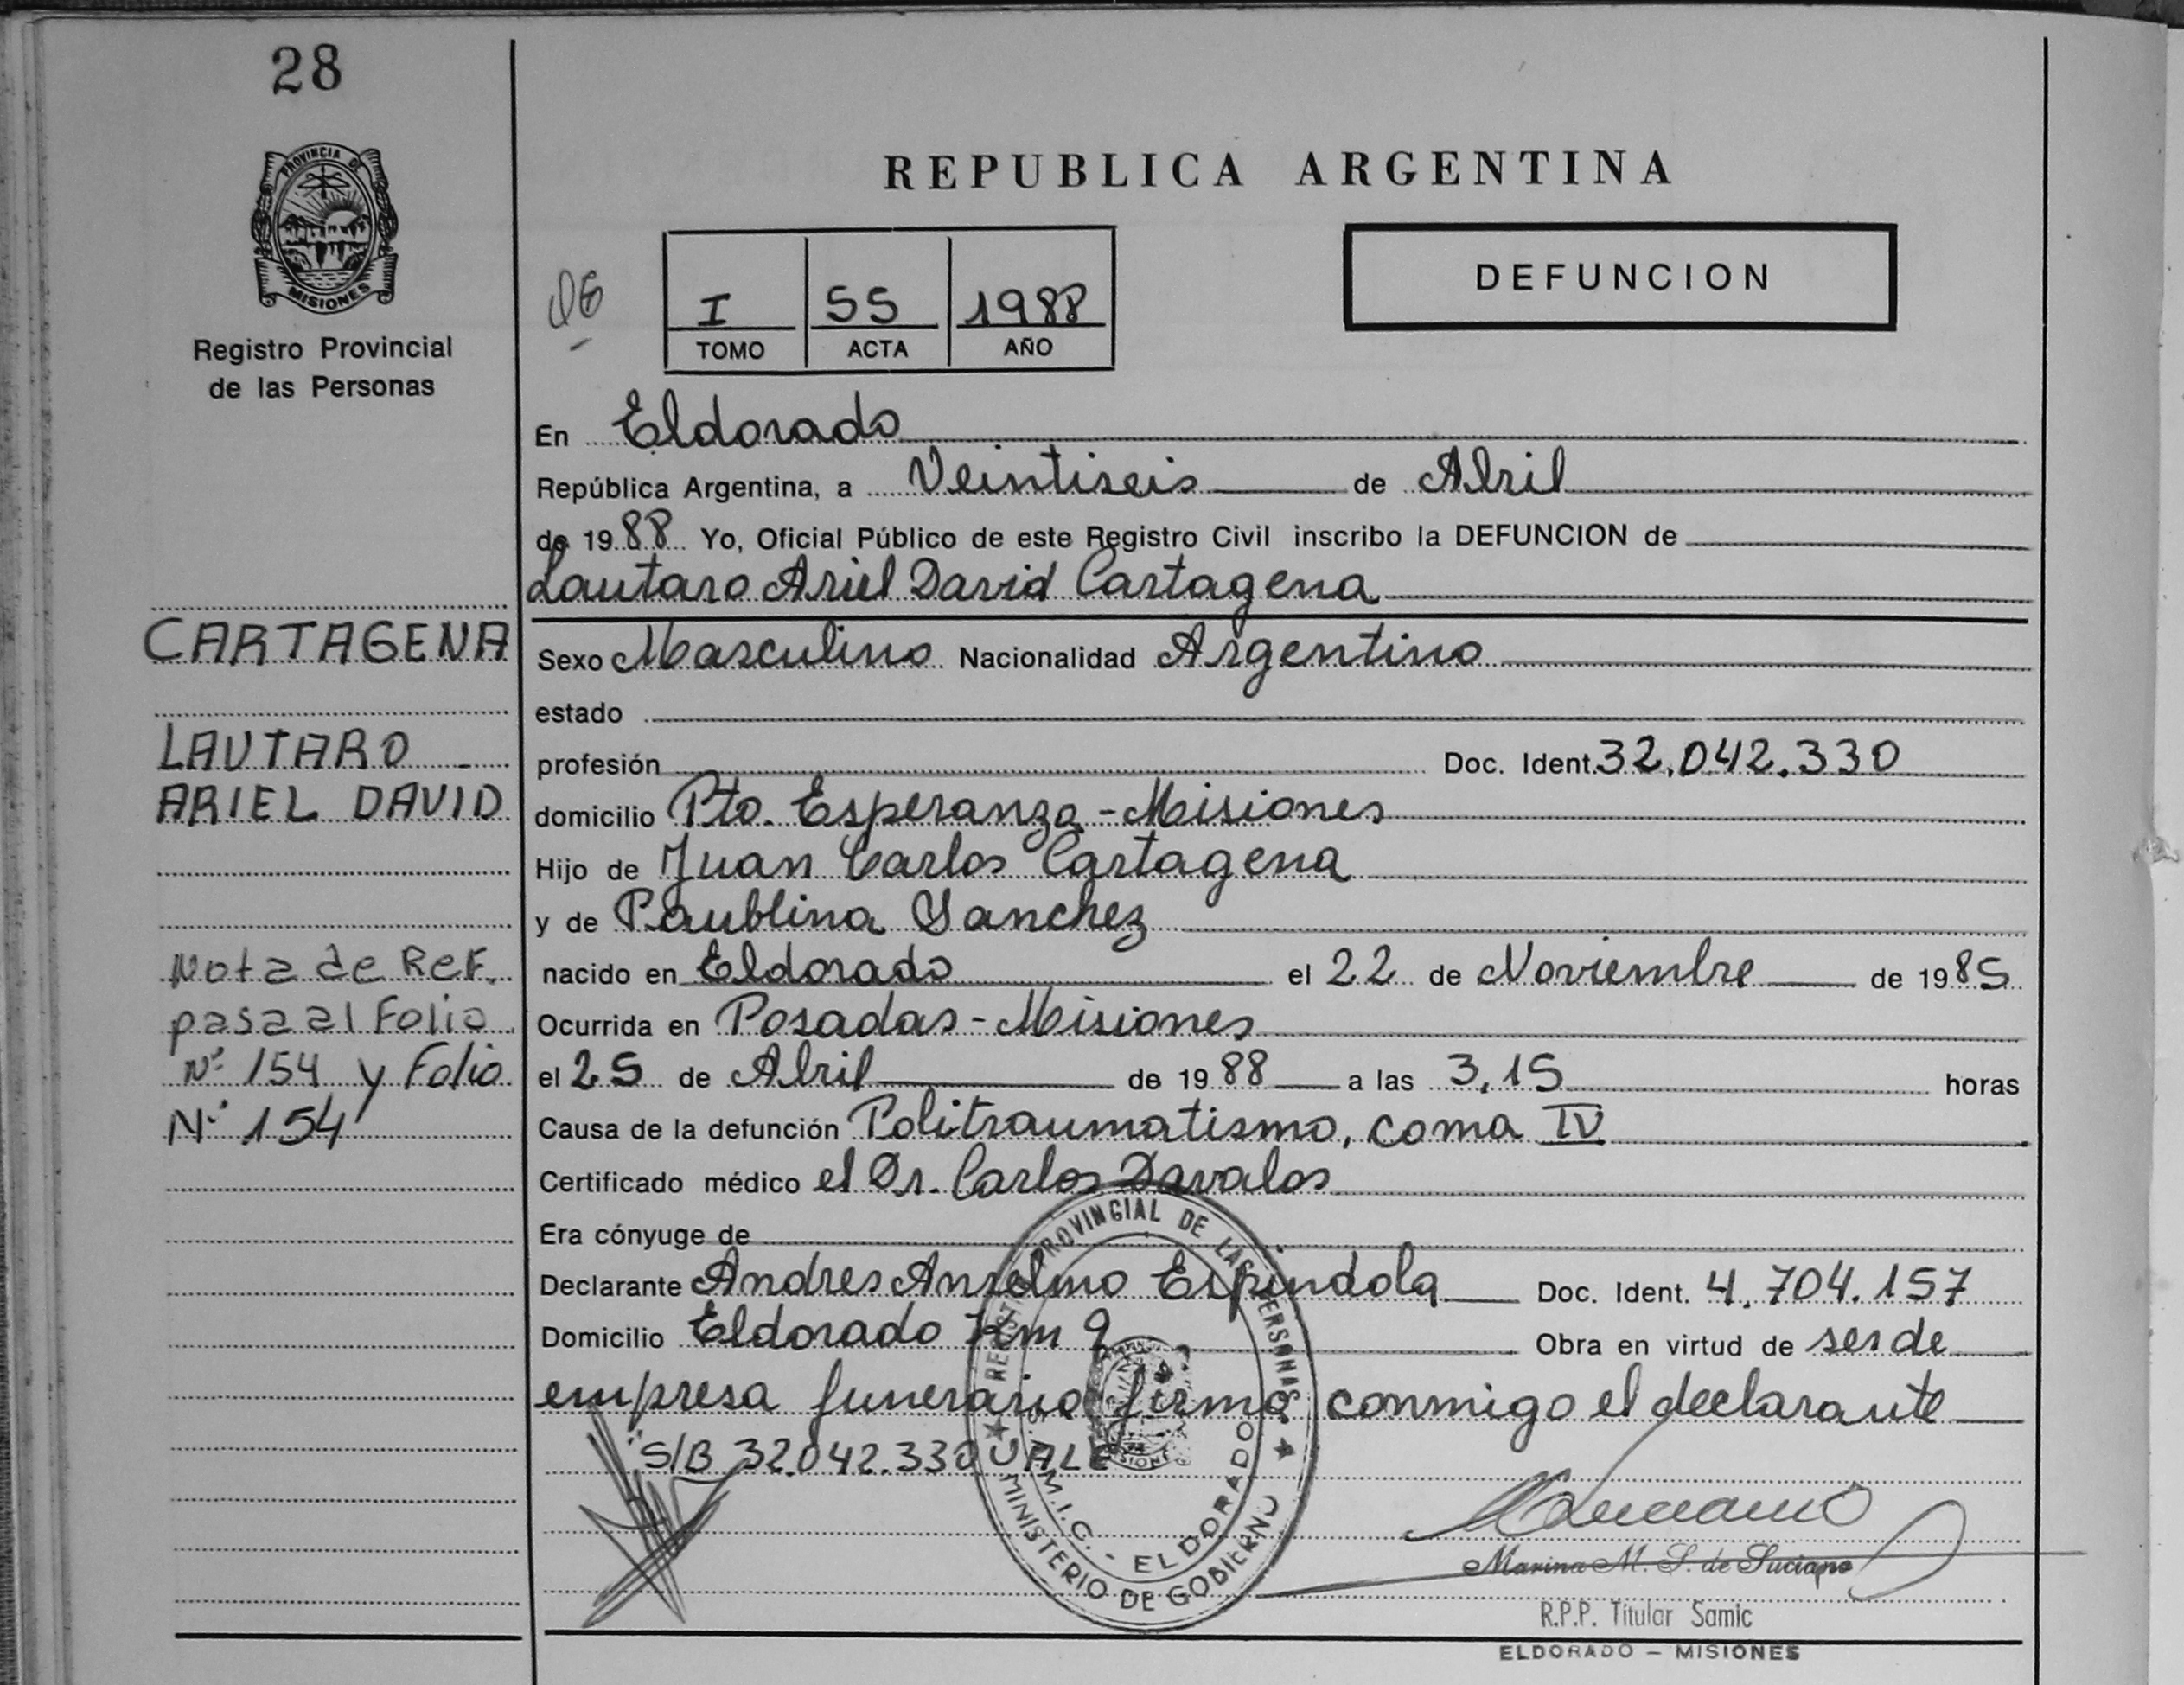 28
PROVINCIA DE
MISIONES
Registro Provincial
de las Personas
REPUBLICA ARGENTINA
I 55 1988
TOMO ACTA AÑO
DEFUNCION
En Eldorado
República Argentina, a Veintiseis de Abril
de 1988 Yo, Oficial Público de este Registro Civil inscribo la DEFUNCION de
Lautaro Ariel David Cartagena
CARTAGENA
Sexo Masculino Nacionalidad Argentino
estado
LAUTARO
profesión Doc. Ident. 32.042.330
ARIEL DAVID
domicilio Pto. Esperanza - Misiones
Hijo de Juan Carlos Cartagena
y de Paublina Sanchez
Nota de Ref.
pasa al Folio
Nº 154 y Folio
Nº 154
nacido en Eldorado el 22 de Noviembre de 1985
Ocurrida en Posadas - Misiones
el 25 de Abril de 1988 a las 3,15 horas
Causa de la defunción Politraumatismo, coma IV
Certificado médico el Dr. Carlos Davalos
Era cónyuge de
Declarante Andres Anselmo Espindola Doc. Ident. 4.704.157
Domicilio Eldorado Km 9 Obra en virtud de ser de
empresa funeraria firma conmigo el declarante
S/B 32.042.330 VALE
REGISTRO PROVINCIAL DE LAS PERSONAS
MINISTERIO DE GOBIERNO
ELDORADO
Marina M. S. de Luciano
R.P.P. Titular Samic
ELDORADO — MISIONES